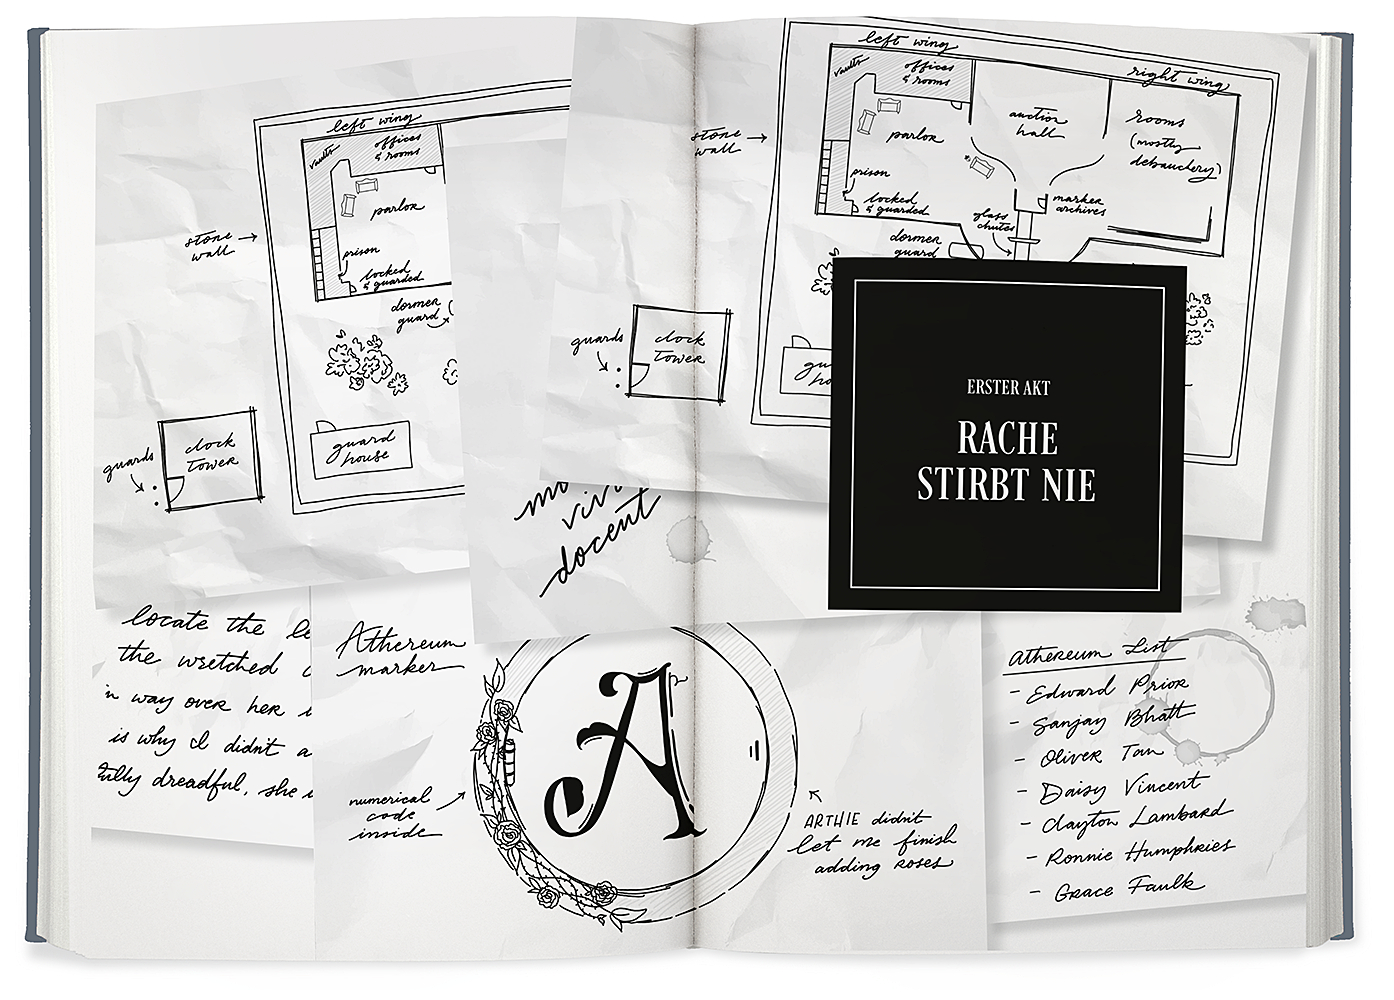 left wing
vaults
offices
& rooms
parlor
stone
wall
prison
locked
& guarded
dormer
guard
guards
clock
tower
guard
house
left wing
right wing
vaults
offices
& rooms
auction
hall
rooms
(mostly
debauchery)
stone
wall
parlor
prison
locked
& guarded
glass
chutes
marker
archives
dormer
guard
guards
clock
tower
gu
ho
ERSTER AKT
RACHE
STIRBT NIE
docent
locate the le
the wretched
in way over her
is why I didn't a
fully dreadful, she
Athereum
marker
A
numerical
code
inside
ARTHIE didn't
let me finish
adding roses
Athereum List
- Edward Prior
- Sanjay Bhatt
- Oliver Tan
- Daisy Vincent
- Clayton Lambard
- Ronnie Humphries
- Grace Faulk